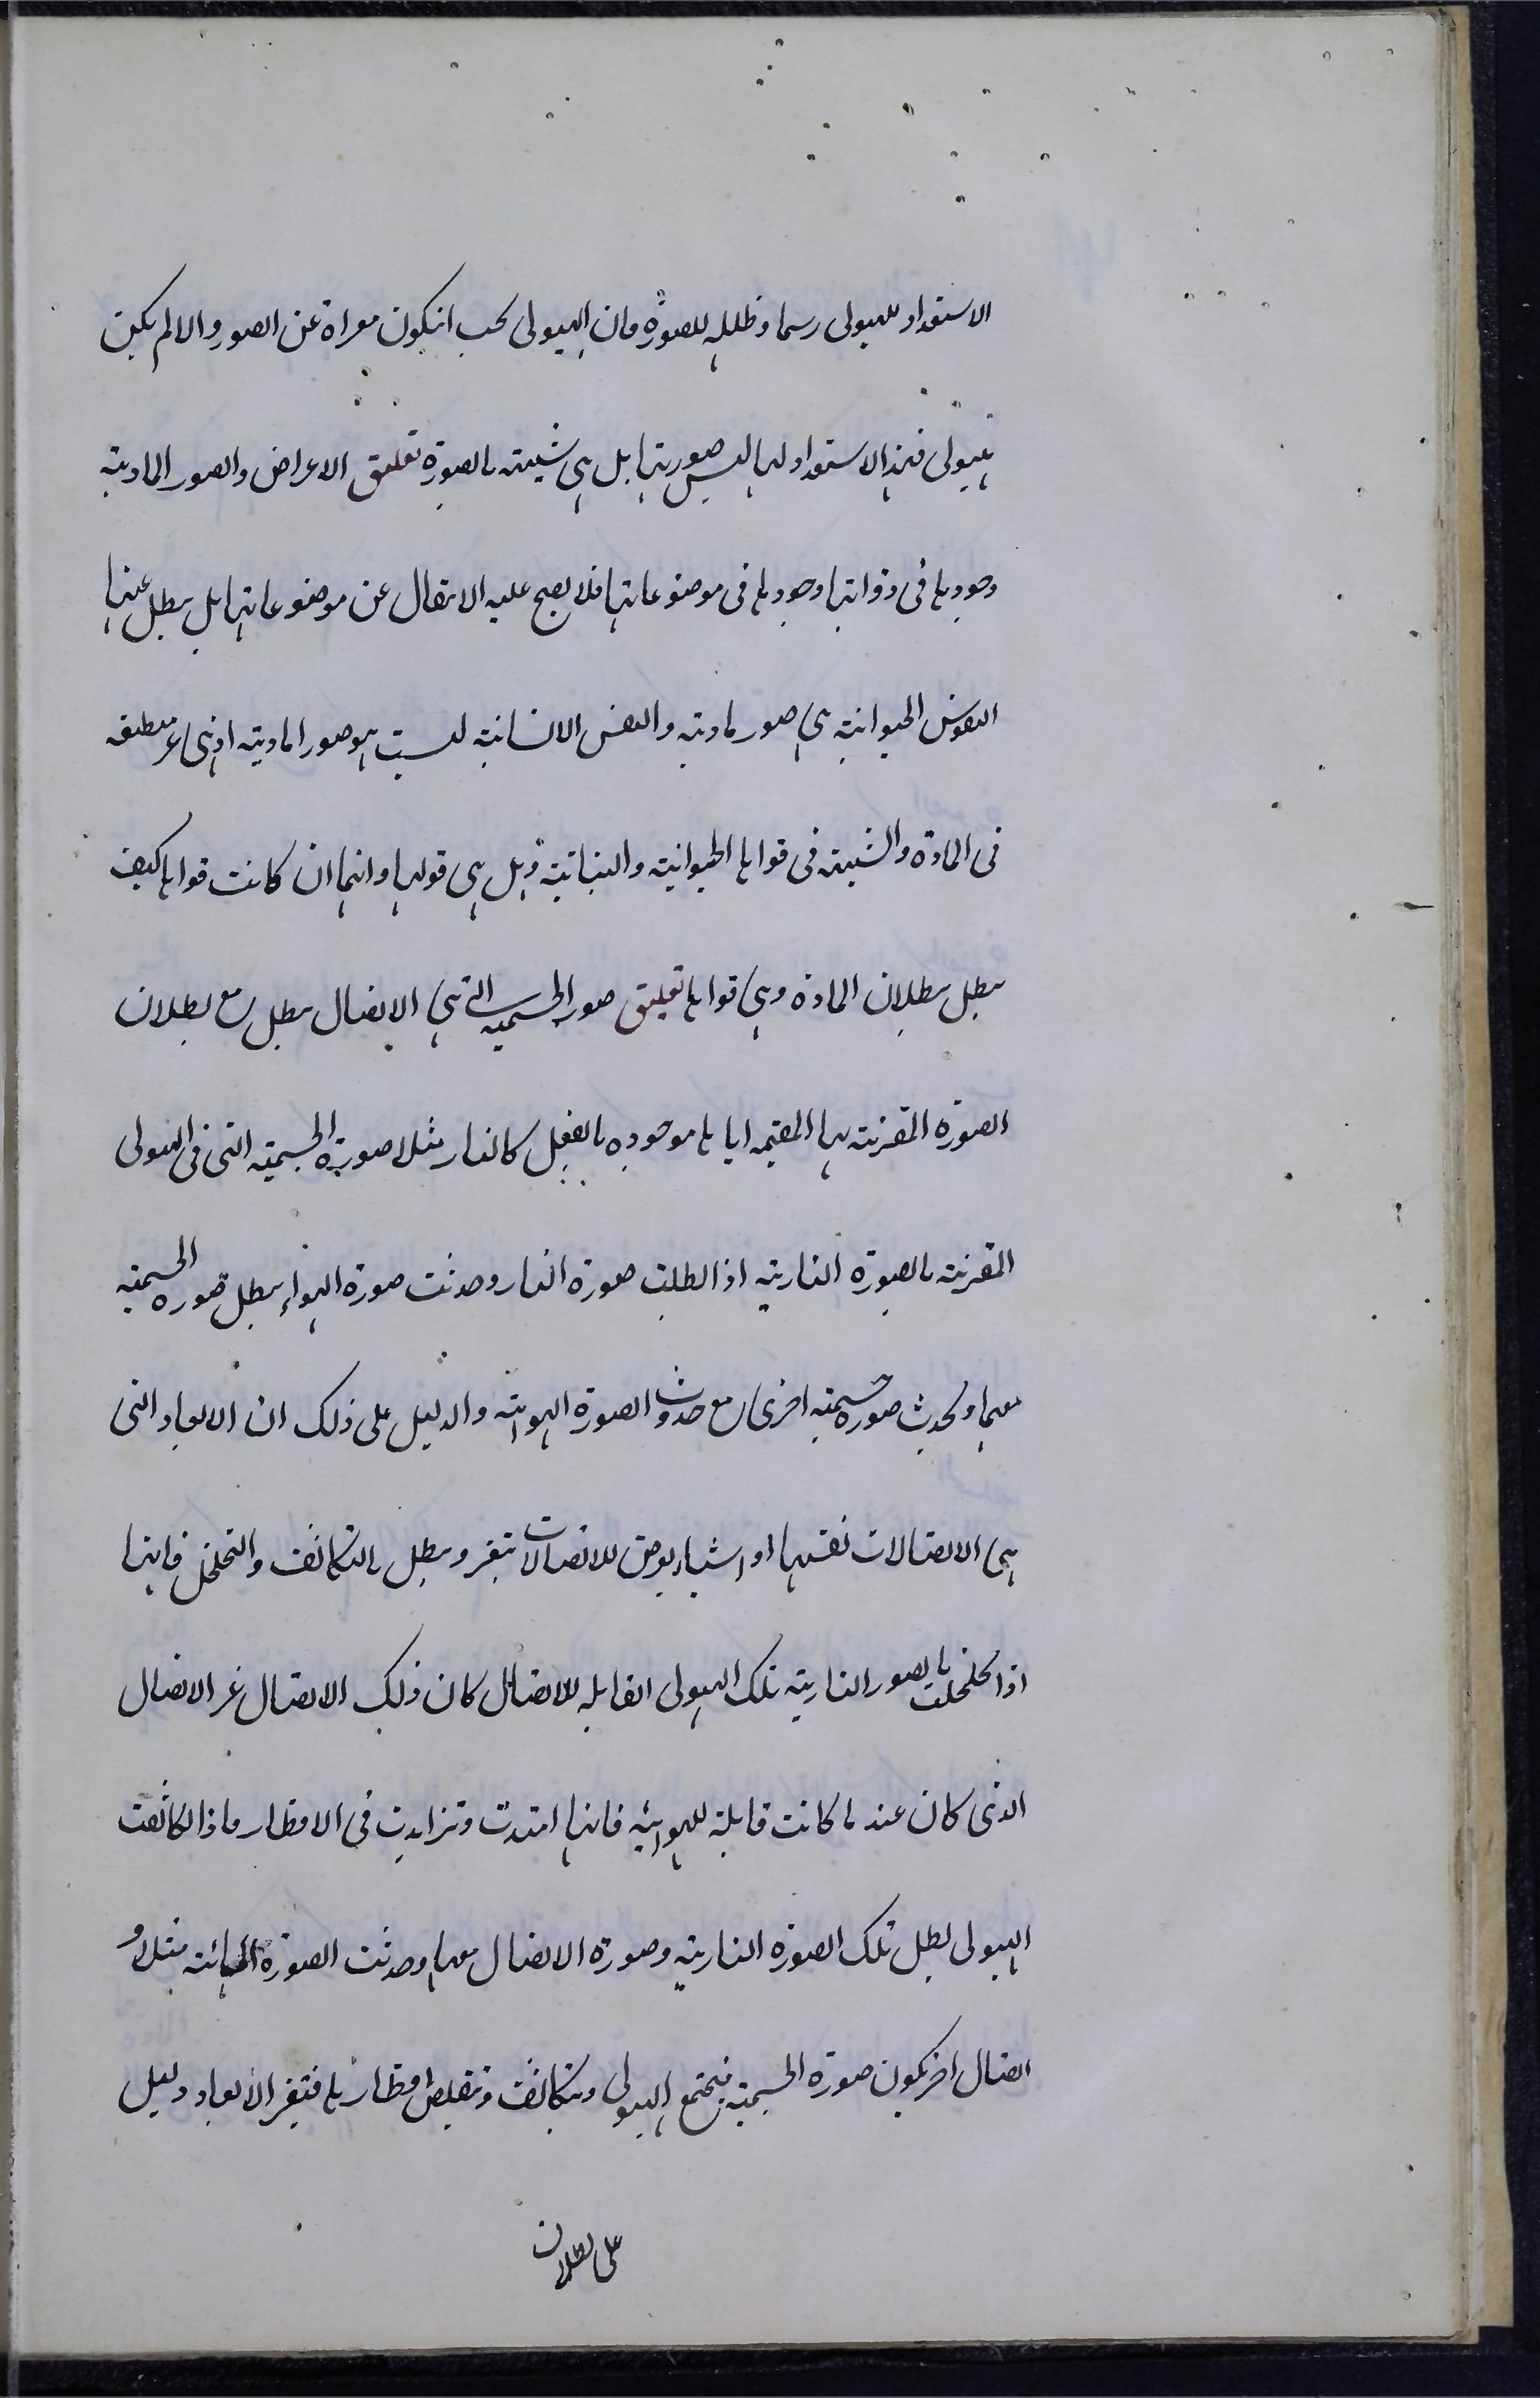 الاستعداد للهيولى رسما وظلله للصورة فان الهيولى يجب انيكون معراة عن الصور والا لم يكن
هيولى فهذا الاستعداد لها ليس صورتها بل هى شبيهة بالصورة تعليق الاعراض والصور المادية
وجودها فى ذواتها وجودها فى موضوعاتها فلا يصح عليه الانتقال عن موضوعاتها بل يبطل عنها
النفوس الحيوانية هى صور مادية والنفس الانسانية ليست هو صور المادية اذ هى غير منطبعة
فى المادة والشبهة فى قواها الحيوانية والنباتية وبل هى قولها وانها ان كانت قواها كيف
يبطل ببطلان المادة وهى قواها تعليق صور الجسمية التى هى الاتصال يبطل مع بطلان
الصورة المقترنة بها المقيمه اياها موجوده بالفعل كالنار مثلا صورة الجسمية التى فى الهيولى
المقترنة بالصورة النارية اذا بطلت صورة النار وحدثت صورة الهواء يبطل صورة الجسمية
معها ويحدث صورة جسمية اخرى مع حدوث الصورة الهوائية والدليل على ذلك ان الابعاد التى
هى الاتصالات نفسها او اشياء يعرض للاتصالات يتغير ويبطل بالتكاثف والتخلخل فانها
اذا تخلخلت بالصور النارية تلك الهيولى القابله للاتصال كان ذلك الاتصال غير الاتصال
الذى كان عند ما كانت قابلة للهوائية فانها امتدت وتزايدت فى الاقطار واذا تكاثفت
الهيولى بطل تلك الصورة النارية وصورة الاتصال معها وحدثت الصورة المائية مثلا و
اتصال اخر يكون صورة الجسمية فيجتمع الهيولى ويتكاثف وتتقلص اقطارها فتغير الابعاد دليل
على بطلان